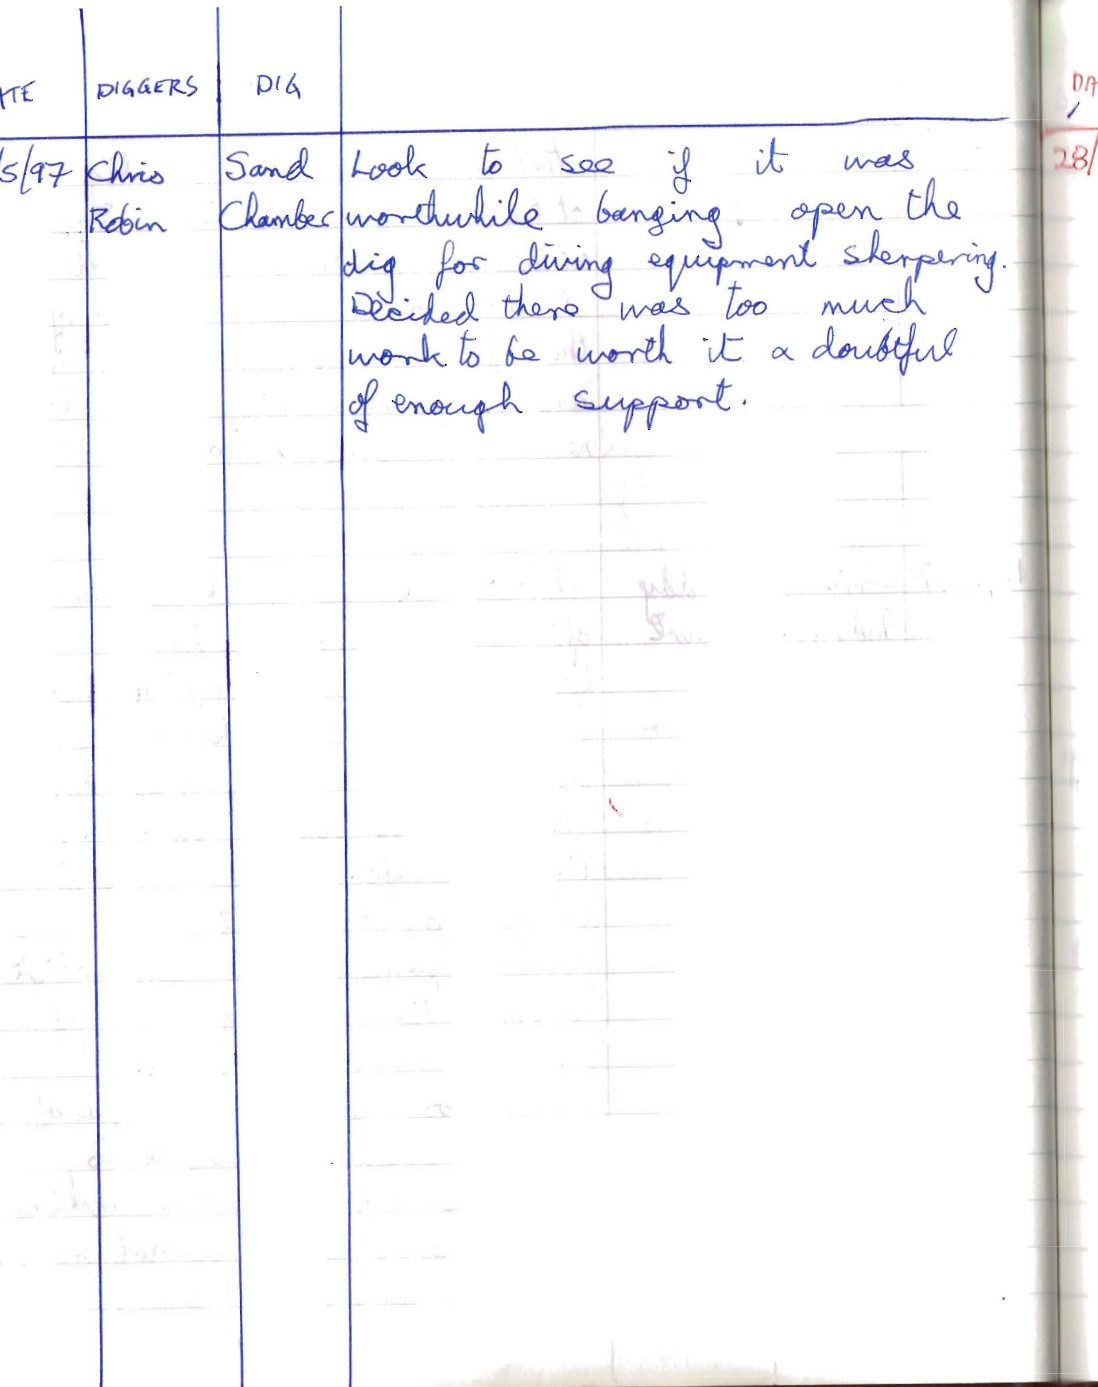 ATE DIGGERS DIG
/5/97 Chris Sand Look to see if it was
Robin Chamber worthwhile banging open the
dig for diving equipment sherpering.
Decided there was too much
work to be worth it & doubtful
of enough support.
DA
28/